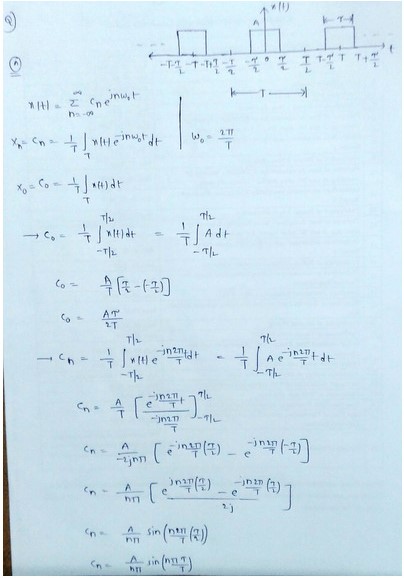 2)
x(t)
A
←τ→
-T-τ/2 -T -T+τ/2 -T/2 -τ/2 0 τ/2 T/2 T-τ/2 T T+τ/2 t
a)
← T →
x(t) = ∑_{n=-∞}^{∞} C_n e^{jnω₀t}
X_n = C_n = 1/T ∫_T x(t) e^{-jnω₀t} dt | ω₀ = 2π/T
X₀ = C₀ = 1/T ∫_T x(t) dt
→ C₀ = 1/T ∫_{-T/2}^{T/2} x(t) dt = 1/T ∫_{-τ/2}^{τ/2} A dt
C₀ = A/T [τ/2 - (-τ/2)]
C₀ = Aτ/2T
→ C_n = 1/T ∫_{-T/2}^{T/2} x(t) e^{-jn2π/T t} dt = 1/T ∫_{-τ/2}^{τ/2} A e^{-jn2π/T t} dt
C_n = A/T [e^{-jn2π/T t} / (-jn2π/T)]_{-τ/2}^{τ/2}
C_n = A/-2jnπ [e^{-jn2π/T (τ/2)} - e^{-jn2π/T (-τ/2)}]
C_n = A/nπ [(e^{jn2π/T (τ/2)} - e^{-jn2π/T (τ/2)}) / 2j]
C_n = A/nπ sin(n2π/T (τ/2))
C_n = A/nπ sin(nπ τ/T)